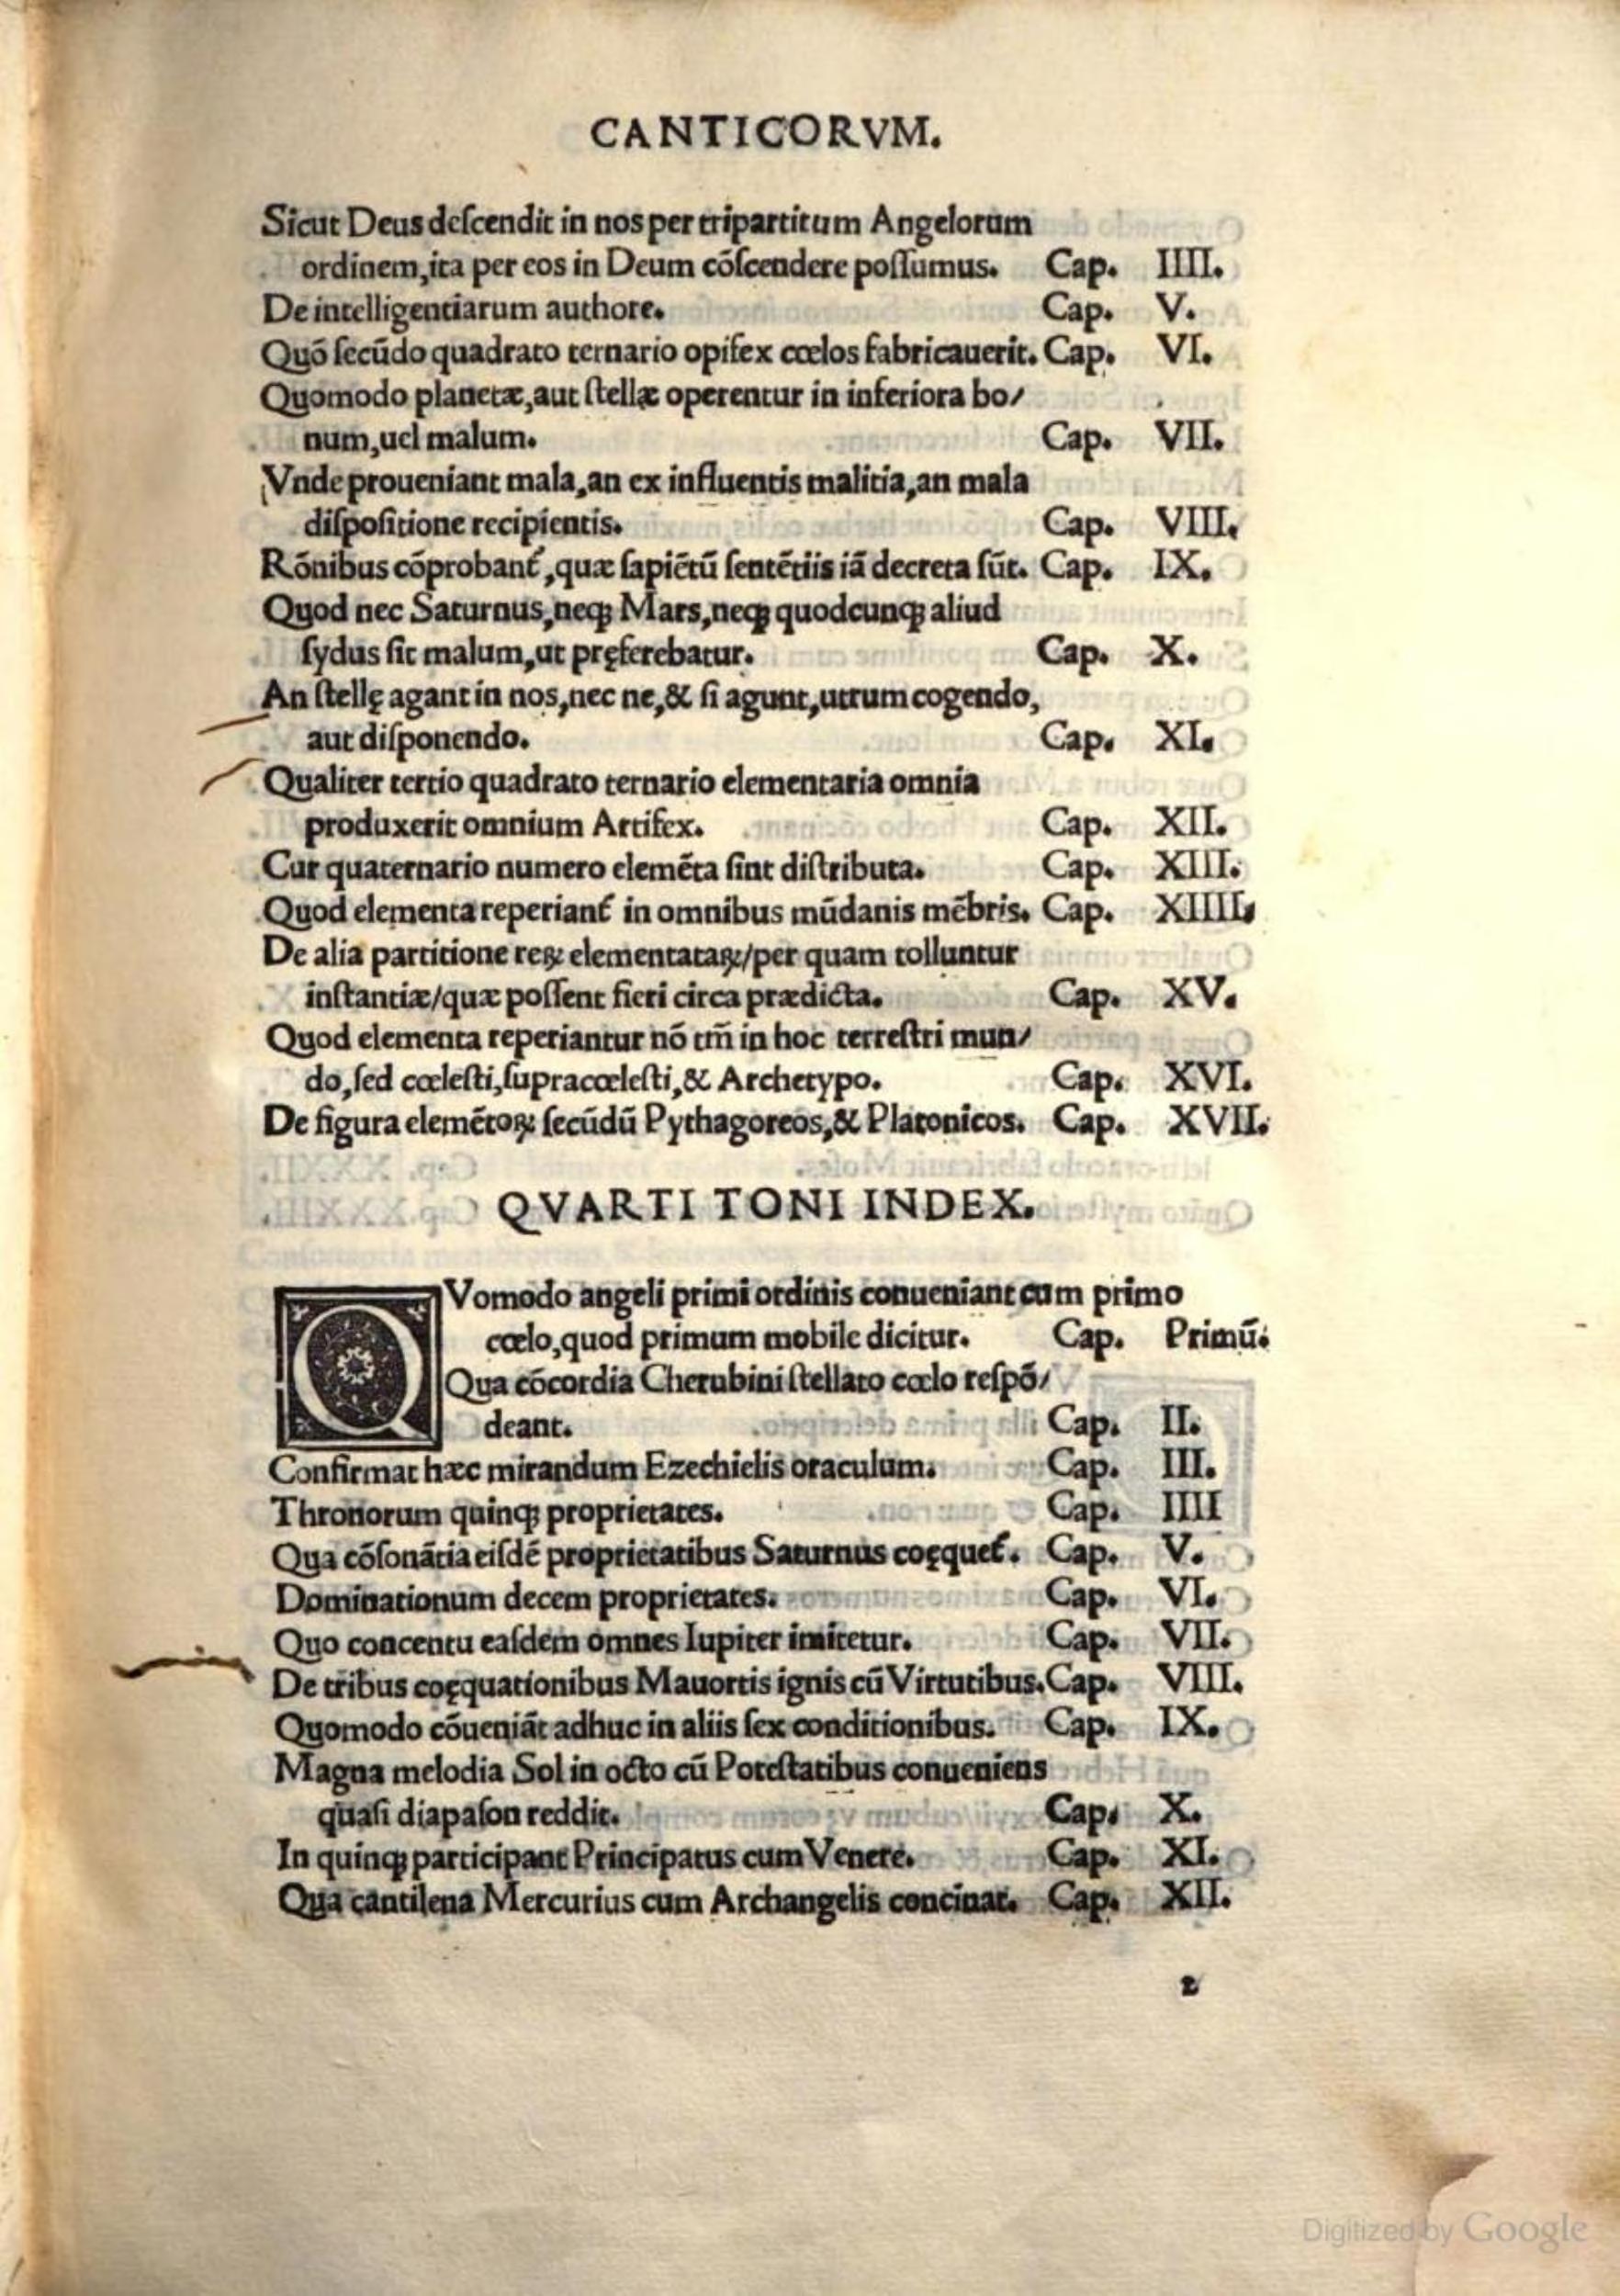 CANTICORVM.
Sicut Deus deſcendit in nos per tripartitum Angelorum
ordinem,ita per eos in Deum cõſcendere poſſumus. Cap. IIII.
De intelligentiarum authore. Cap. V.
Quõ ſecũdo quadrato ternario opifex cœlos fabricauerit. Cap. VI.
Quomodo planetæ,aut ſtellæ operentur in inferiora bo/
num,uel malum. Cap. VII.
Vnde proueniant mala,an ex influentis malitia,an mala
diſpoſitione recipientis. Cap. VIII.
Rõnibus cõprobant᷑,quæ ſapiẽtũ ſentẽtiis iã decreta ſũt. Cap. IX.
Quod nec Saturnus,neqꝫ Mars,neqꝫ quodcunqꝫ aliud
ſydus ſit malum,ut pręferebatur. Cap. X.
An ſtellę agant in nos,nec ne,& ſi agunt,utrum cogendo,
aut diſponendo. Cap. XI.
Qualiter tertio quadrato ternario elementaria omnia
produxerit omnium Artifex. Cap. XII.
Cur quaternario numero elemẽta ſint diſtributa. Cap. XIII.
Quod elementa reperiant᷑ in omnibus mũdanis mẽbris. Cap. XIIII.
De alia partitione reꝝ elementataꝝ/per quam tolluntur
inſtantiæ/quæ poſſent fieri circa prædicta. Cap. XV.
Quod elementa reperiantur nõ tm̃ in hoc terreſtri mun/
do,ſed cœleſti,ſupracœleſti,& Archetypo. Cap. XVI.
De figura elemẽtoꝝ ſecũdũ Pythagoreos,& Platonicos. Cap. XVII.
QVARTI TONI INDEX.
QVomodo angeli primi ordinis conueniant cum primo
cœlo,quod primum mobile dicitur. Cap. Primũ.
Qua cõcordia Cherubini ſtellato cœlo reſpõ/
deant. Cap. II.
Confirmat hæc mirandum Ezechielis oraculum. Cap. III.
Thronorum quinqꝫ proprietates. Cap. IIII
Qua cõſonãtia eiſdẽ proprietatibus Saturnus coęquet᷑. Cap. V.
Dominationum decem proprietates. Cap. VI.
Quo concentu eaſdem omnes Iupiter imitetur. Cap. VII.
De tribus coęquationibus Mauortis ignis cũ Virtutibus. Cap. VIII.
Quomodo cõueniãt adhuc in aliis ſex conditionibus. Cap. IX.
Magna melodia Sol in octo cũ Poteſtatibus conueniens
quaſi diapaſon reddit. Cap. X.
In quinqꝫ participant Principatus cum Venere. Cap. XI.
Qua cantilena Mercurius cum Archangelis concinat. Cap. XII.
2
Digitized by Google